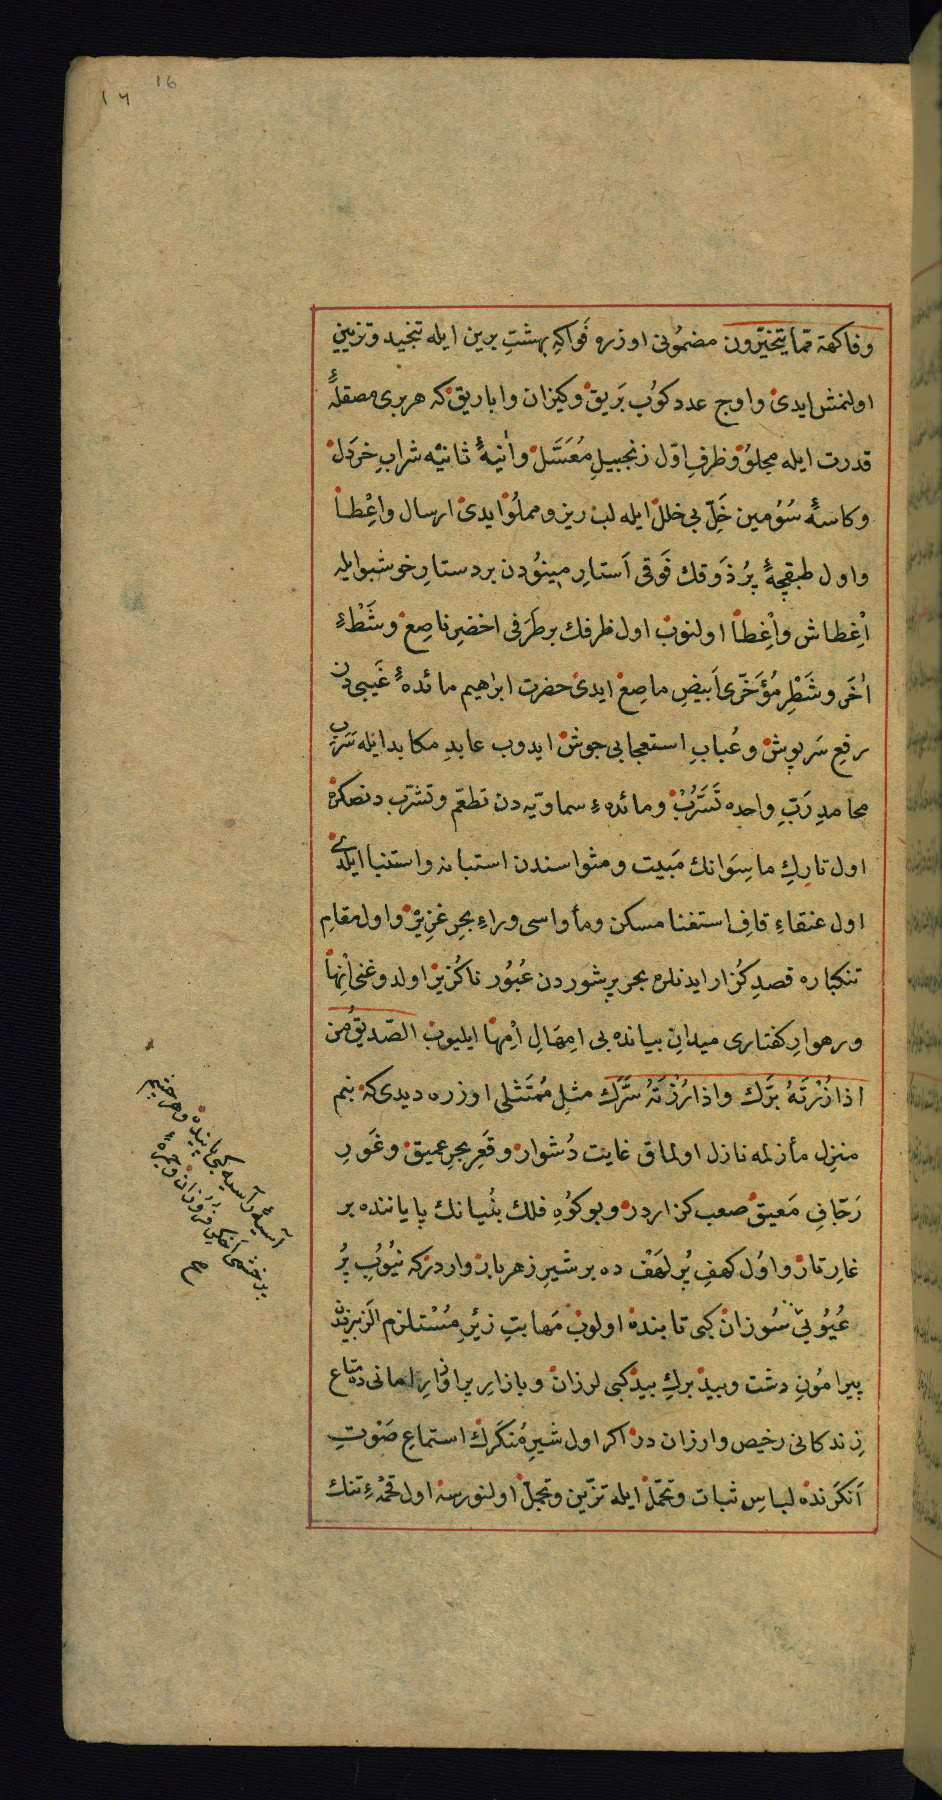 ١٦ 16
وفاكهة ممّا يتخيّرون مضمُونى اوزره فَواكهِ بهشتِ برين ايله تنجيد وتزيين
اولنمش ايدى واوج عدد كوُب بَريق وكيزان واباريق كه هربرى مصقلهٔ
قدرت ايله مجلوُ وظرفِ اوّل زنجبيلِ مُعَسَّل واٰنيهٔ ثانيّه شرابِ خردل
وكاسهٔ سُوُمين خَلِّ بى خلل ايله لب ريز ومملوُ ايدى ارسال واعْطا
واول طبقچهٔ پرُ ذَوقك فَوقى اَستارِ مينوُدن بر دستارِ خوشبو ايله
اِغطاش واِغْطا اولنوب اول ظرفك بر طَرَفى اخضرِ ناصِع وشَطْءِ
اٰخَر وشَطْرِ مُؤَخَّرى اَبيضِ ماصِع ايدى حضرت ابراهيم مائدهٔ غَيبى دن
رفعِ سَرپوش وعُبابِ استعجابى جوش ايدوب عابدِ مكابد ايله شربِ
محامدِ رَبِّ واحده تَسَرُّبْ ومائدهءِ سماويّه دن تطعّم وتشرّب دنصكره
اول تاركِ ماسِوَانك مَبيت ومثواسندن استبانه واستنبا ايلدى
اول عنقاءِ قافِ استغنا مسكن ومأواسى وراءِ بحرِ غزير واول مقامِ
تنكباره قصدِ كُزار ايدنلره بحر پرشوردن عُبوُر ناكزير اولدوغنى اِنها
ورهوارِ كفتارى ميدانِ بيانده بى اِمهَالِ اِمها ايليوب الصّديقُ من
اذا زُرْتَهُ بَرَّك واذا زُرْتَهُ سَرَّك مثلِ مُمتَثلى اوزره ديدى كه بنم
منزل مأزلمه نازل اولماق غايت دُشوار وقَعِرِ بحرِ عميق وغَورِ
رَجّافِ مَعيق صعب كزاردر وبوكوُهِ فلك بُنيانك پاياننده بر
غارِ تار واوُل كهفِ پُر لَهَف ده بر شيرِ زهربار واردر كه نيوُبِ پرُ
عُيوُبى سُوزان كبى تابنده اولوب مَهابتِ زئيرِ مُسْتلزم
پيرامُونِ دشت وبيد بركِ بيد كبى لرزان وبازارِ امانى ده متاع
زندكانى رخيص وارزان در اكر اول شيرِ مُنكَرك استماعِ صَوتِ
اَنكَرنده لباسِ ثبات وتحمّل ايله تزيّن وتجمّل اولنورسه اول تنك
آسيهٔ رآسيه كبى پاينده وهر خشم
پرخشمى اخكرِ فروزان وجمرهٔ
صح